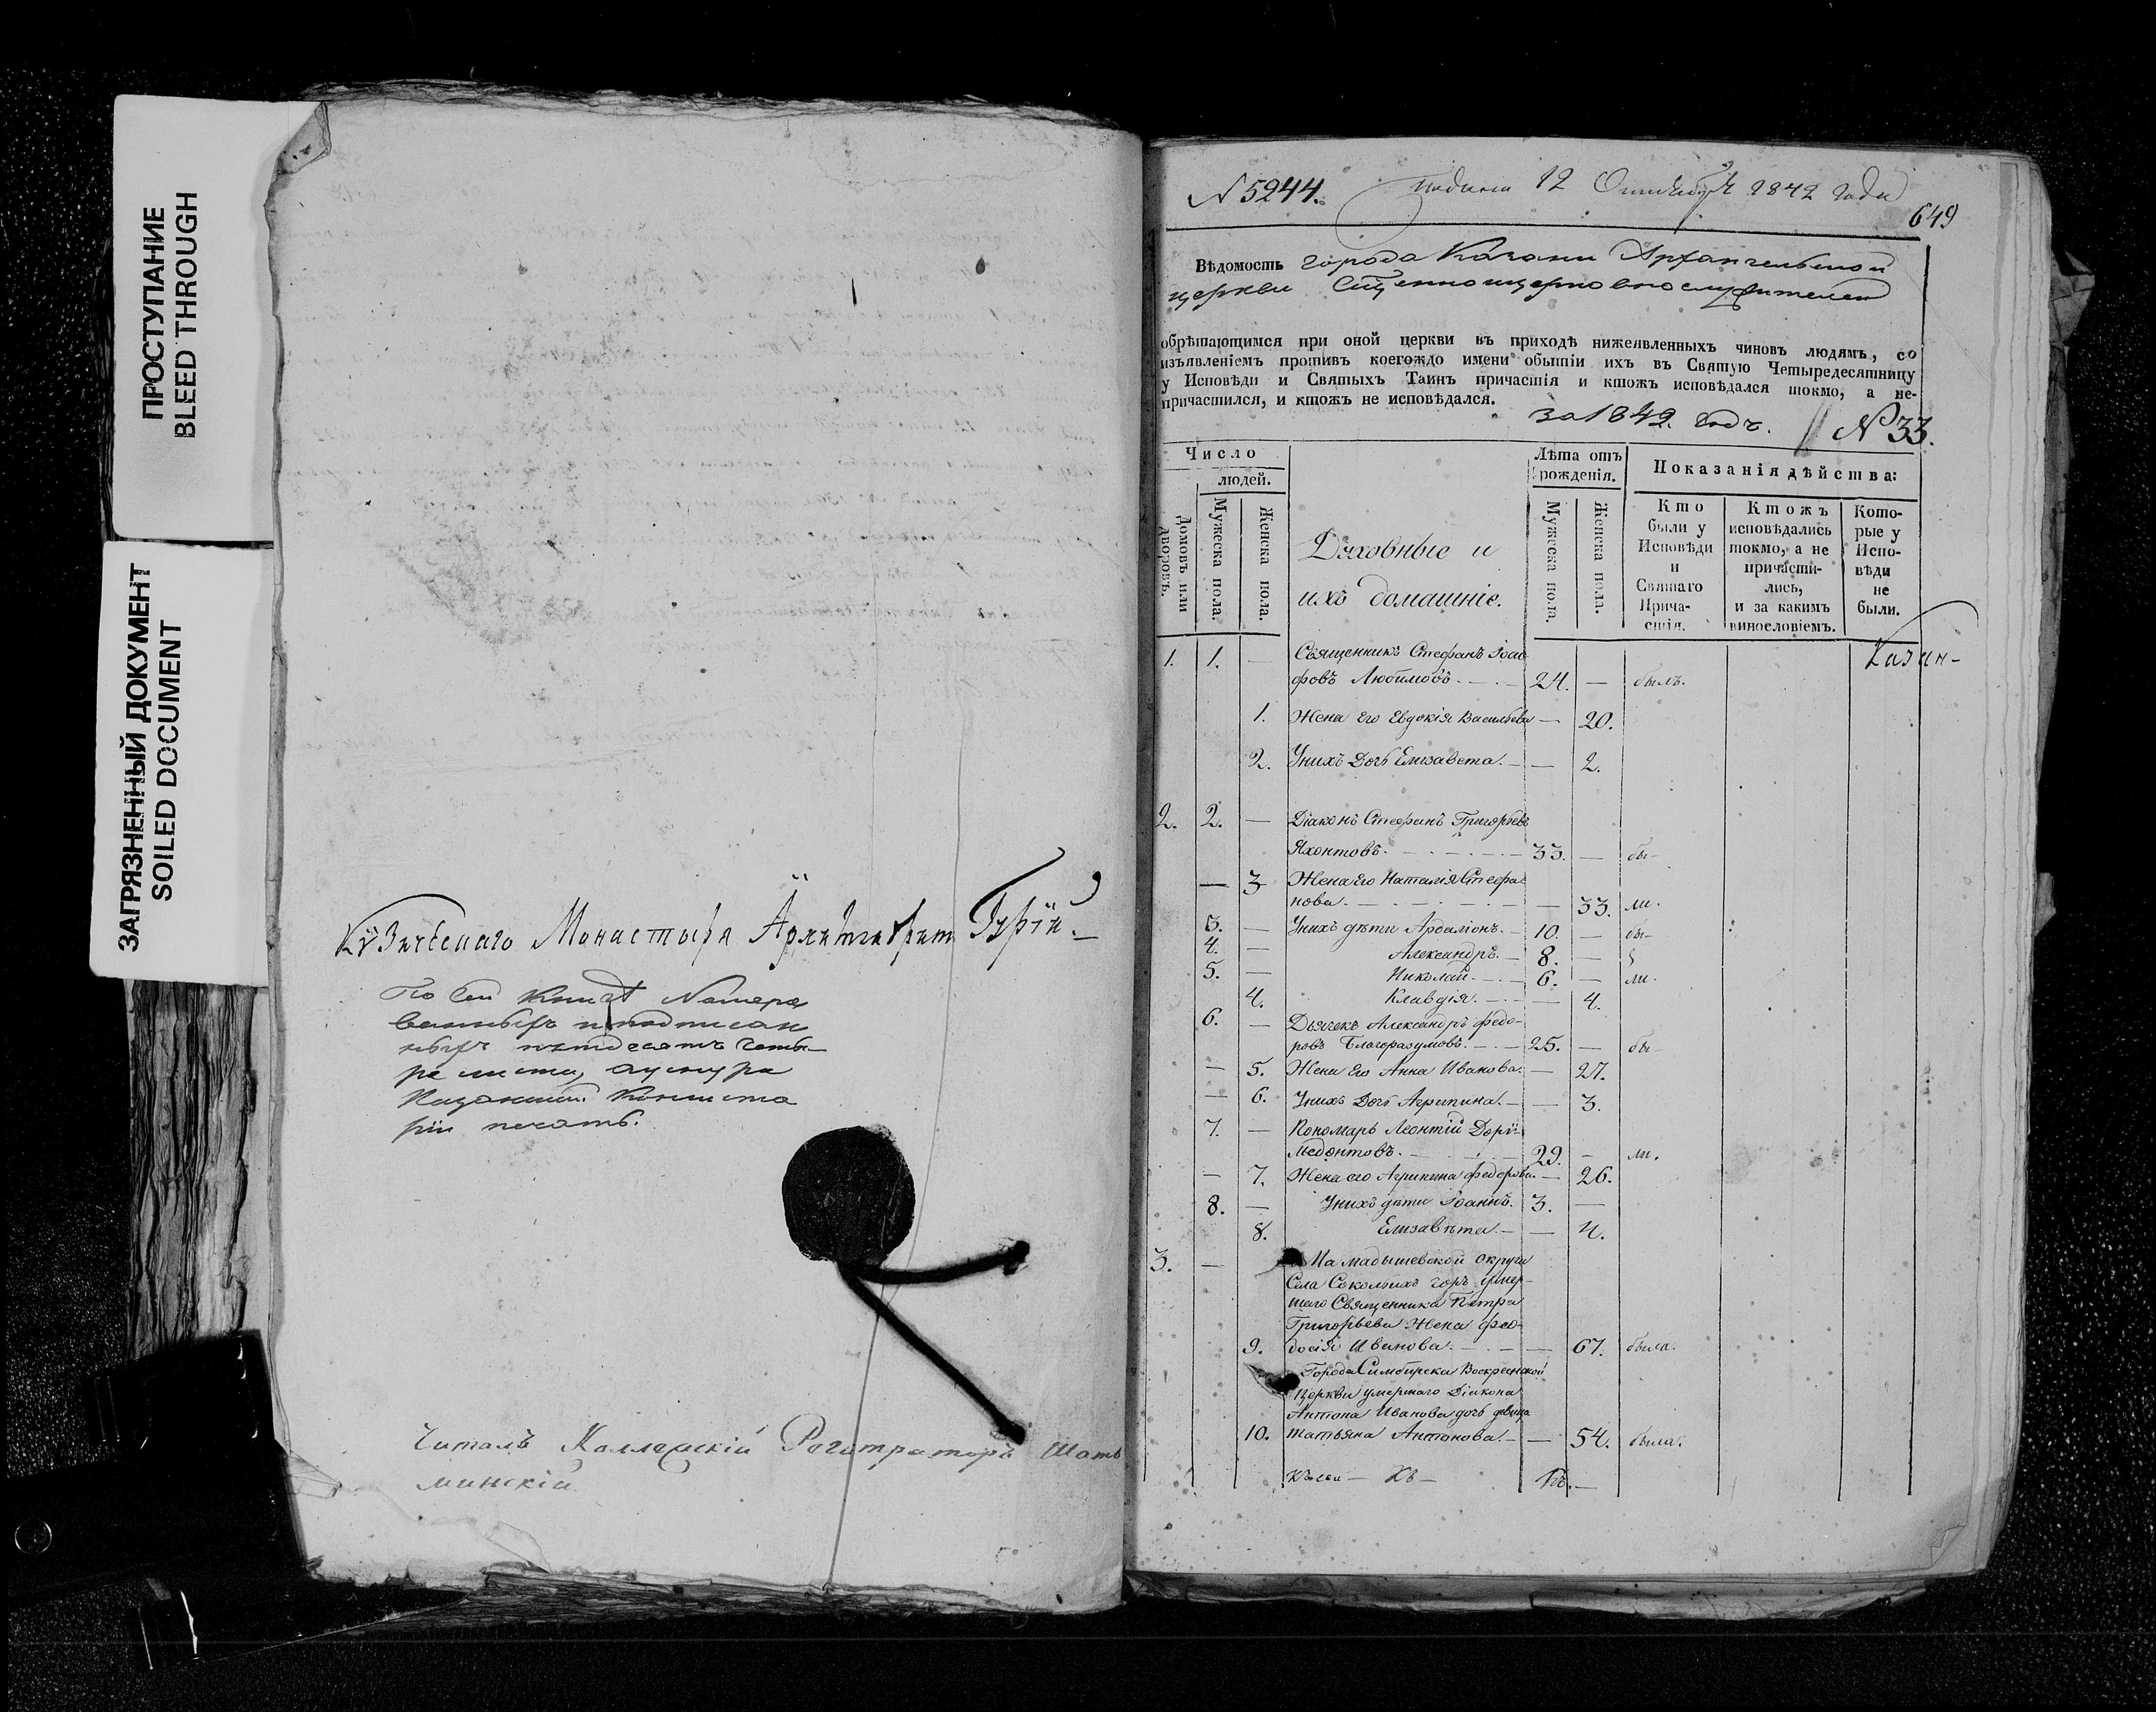 ПРОСТУПАНИЕ
BLEED THROUGH
ЗАГРЯЗНЕННЫЙ ДОКУМЕНТ
SOILED DOCUMENT
Кѷзическаго Монастыря Архимандритъ Гурій.
По сей книгѣ Номеро
ванныхъ и подписан
ныхъ пятьдесятъ четы-
ре листа, а у шнура
Казанской Консисто
ріи печать.
Читалъ Коллежскій Регистраторъ
минскій
N 5244. 12 1842 года
649
Вѣдомость города Казани Архангельской
церкви
обрѣтающимся при оной церкви въ приходѣ нижеявленныхъ чиновъ людямъ, со
изъявленіемъ противъ коегождо имени о бытіи ихъ въ Святую Четыредесятницу
у Исповѣди и Святыхъ Таинъ причастія и ктожъ исповѣдался токмо, а не-
причастился, и ктожъ не исповѣдался.
за 1842. годъ. № 33.
Число
людей.
Домовъ или дворовъ.
Мужеска пола.
Женска пола.
Духовные и
ихъ домашніе.
Лѣта отъ
рожденія.
Мужеска пола.
Женска пола.
Показанія дѣйства:
Кто
были у
Исповѣди
и
Святаго
Прича-
стія.
Ктожъ
исповѣдались
токмо, а не
причасти-
лись,
и за какимъ
винословіемъ.
Кото-
рые у
Испо-
вѣди
не
были.
Казан-
1. 1. — Священникъ Стефанъ Іоси
фовъ Любимовъ. — 24. — былъ.
1. Жена его Евдокія Васильева — 20.
2. У нихъ дочь Елизавета. — — 2.
2. 2. — Діаконъ Стефанъ Григорьевъ
Яхонтовъ. — 33. — бы-
— 3 Жена его Наталія Стефа
нова. — — 33. ли.
3. — У нихъ дѣти Ардаліонъ. — 10. — бы-
4. — Александръ. — 8. —
5. — Николай. — 6. — ли.
4. Клавдія. — — 4.
6. — Дьячекъ Александръ Федо-
ровъ Благоразумовъ. — 25. — бы-
— 5. Жена его Анна Иванова. — 27.
— 6. У нихъ дочь Агрипина. — — 3.
7. — Пономарь Леонтій Дори-
медонтовъ. — 29. — ли.
— 7. Жена его Агрипина Федорова. — 26.
8. — У нихъ дѣти Іоаннъ. 3. —
8. Елизавета. — — 4.
3. — Мамадышевской округи
Села Сокольихъ горъ умер-
шаго Священника Петра
Григорьева Жена Фео-
9. досія Иванова. — — 67. была.
Города Симбирска Воскресенской
Церкви умершаго Діакона
Антона Иванова дочь девица
10. Татьяна Антонова. — — 54. была.